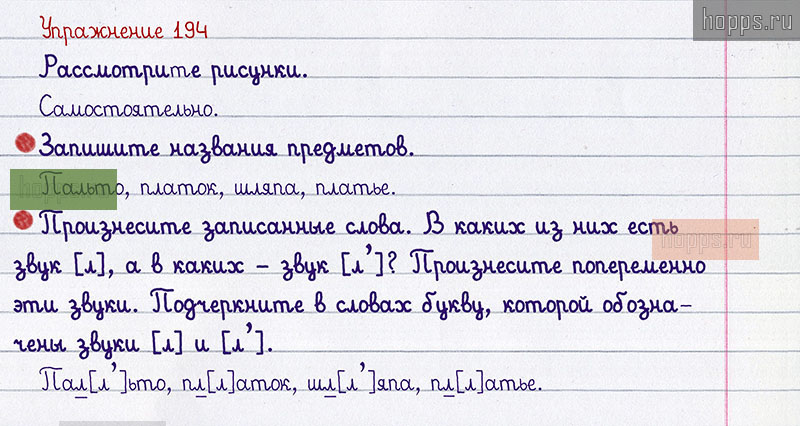 hopps.ru
Упражнение 194
Рассмотрите рисунки.
Самостоятельно.
Запишите названия предметов.
Пальто, платок, шляпа, платье.
Произнесите записанные слова. В каких из них есть
звук [л], а в каких – звук [л’]? Произнесите попеременно
эти звуки. Подчеркните в словах букву, которой обозна-
чены звуки [л] и [л’].
Пал[л’]ьто, пл[л]аток, шл[л’]япа, пл[л]атье.
hopps.ru
hopps.ru